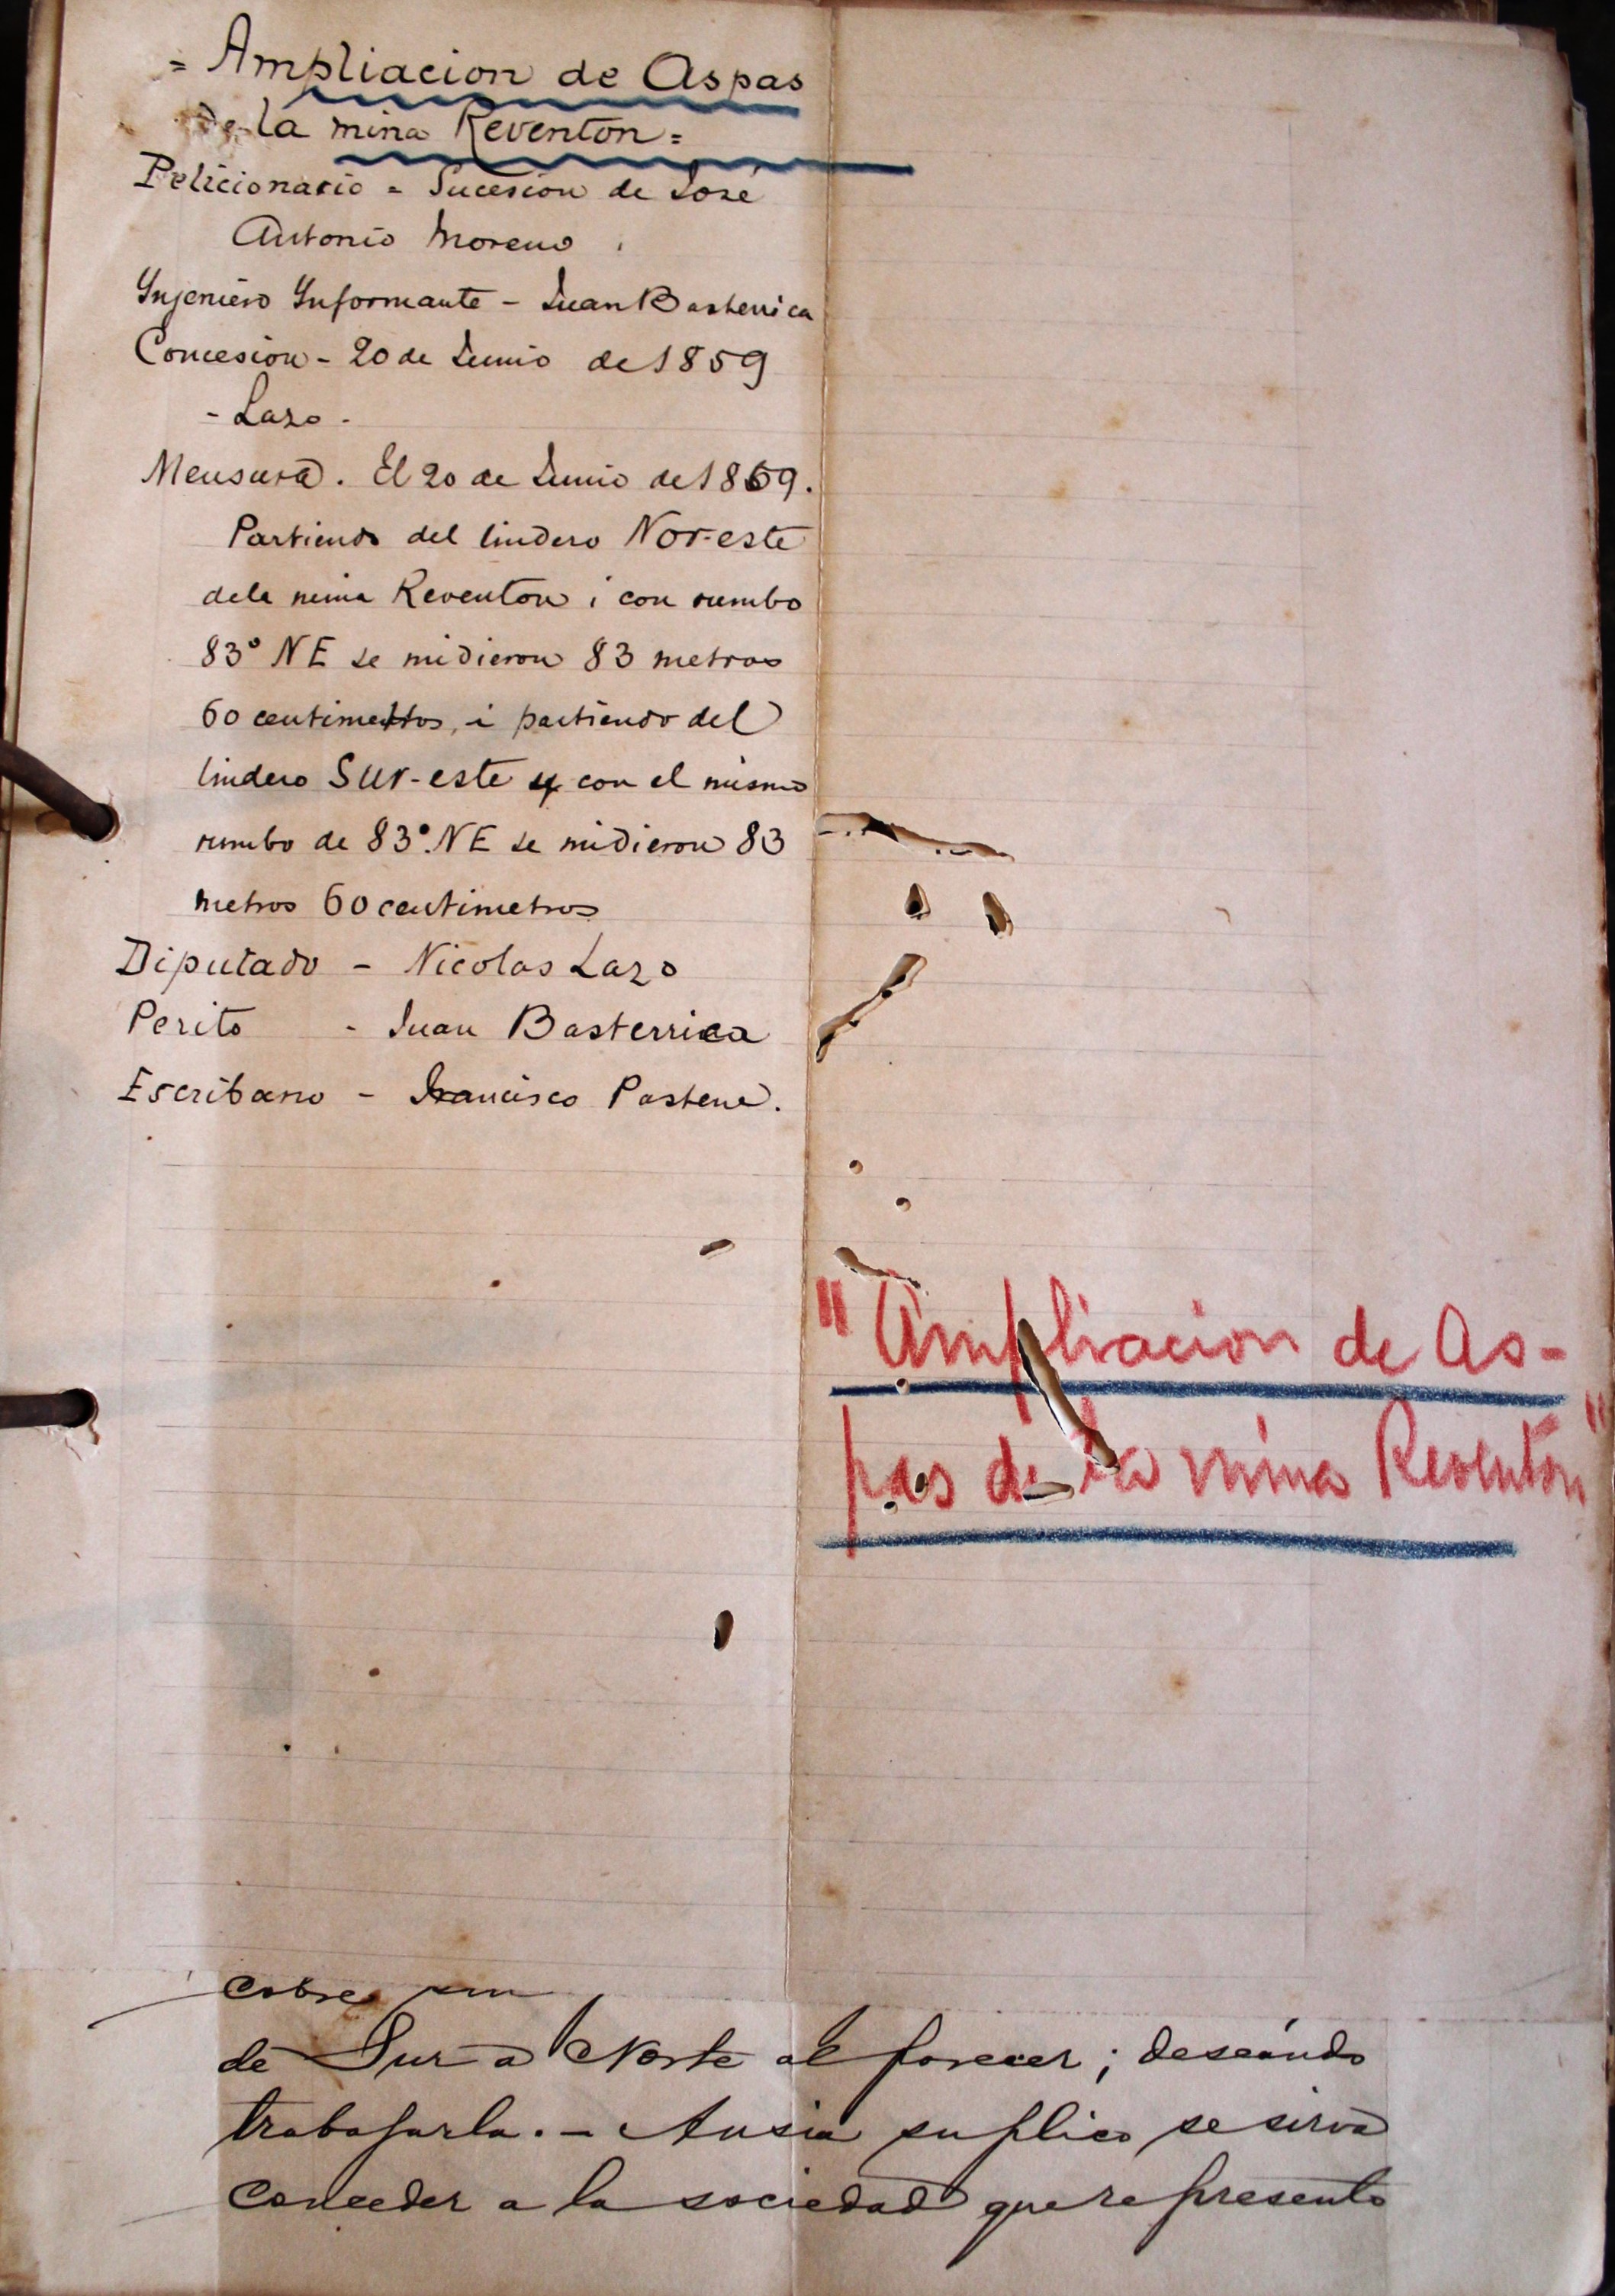 = Ampliacion de Aspas
De la mina Reventon =
Peticionario = Sucesion de José
Antonio Moreno.
Injeniero Informante - Juan Basterrica
Concesion - 20 de Junio de 1859
- Lazo -
Mensura. El 20 de Junio de 1859.
Partiendo del lindero Nor-este
de la mina Reventon i con rumbo
83° NE se midieron 83 metros
60 centimetros, i partiendo del
lindero Sur-este y con el mismo
rumbo de 83° NE se midieron 83
metros 60 centimetros
Diputado - Nicolas Lazo
Perito - Juan Basterrica
Escribano - Francisco Pastene.
"Ampliacion de As-
pas de la mina Reventón"
cobre
de Sur a Norte al parecer; deseándo
trabajarla. - A usia suplico se sirva
conceder a la sociedad que represento